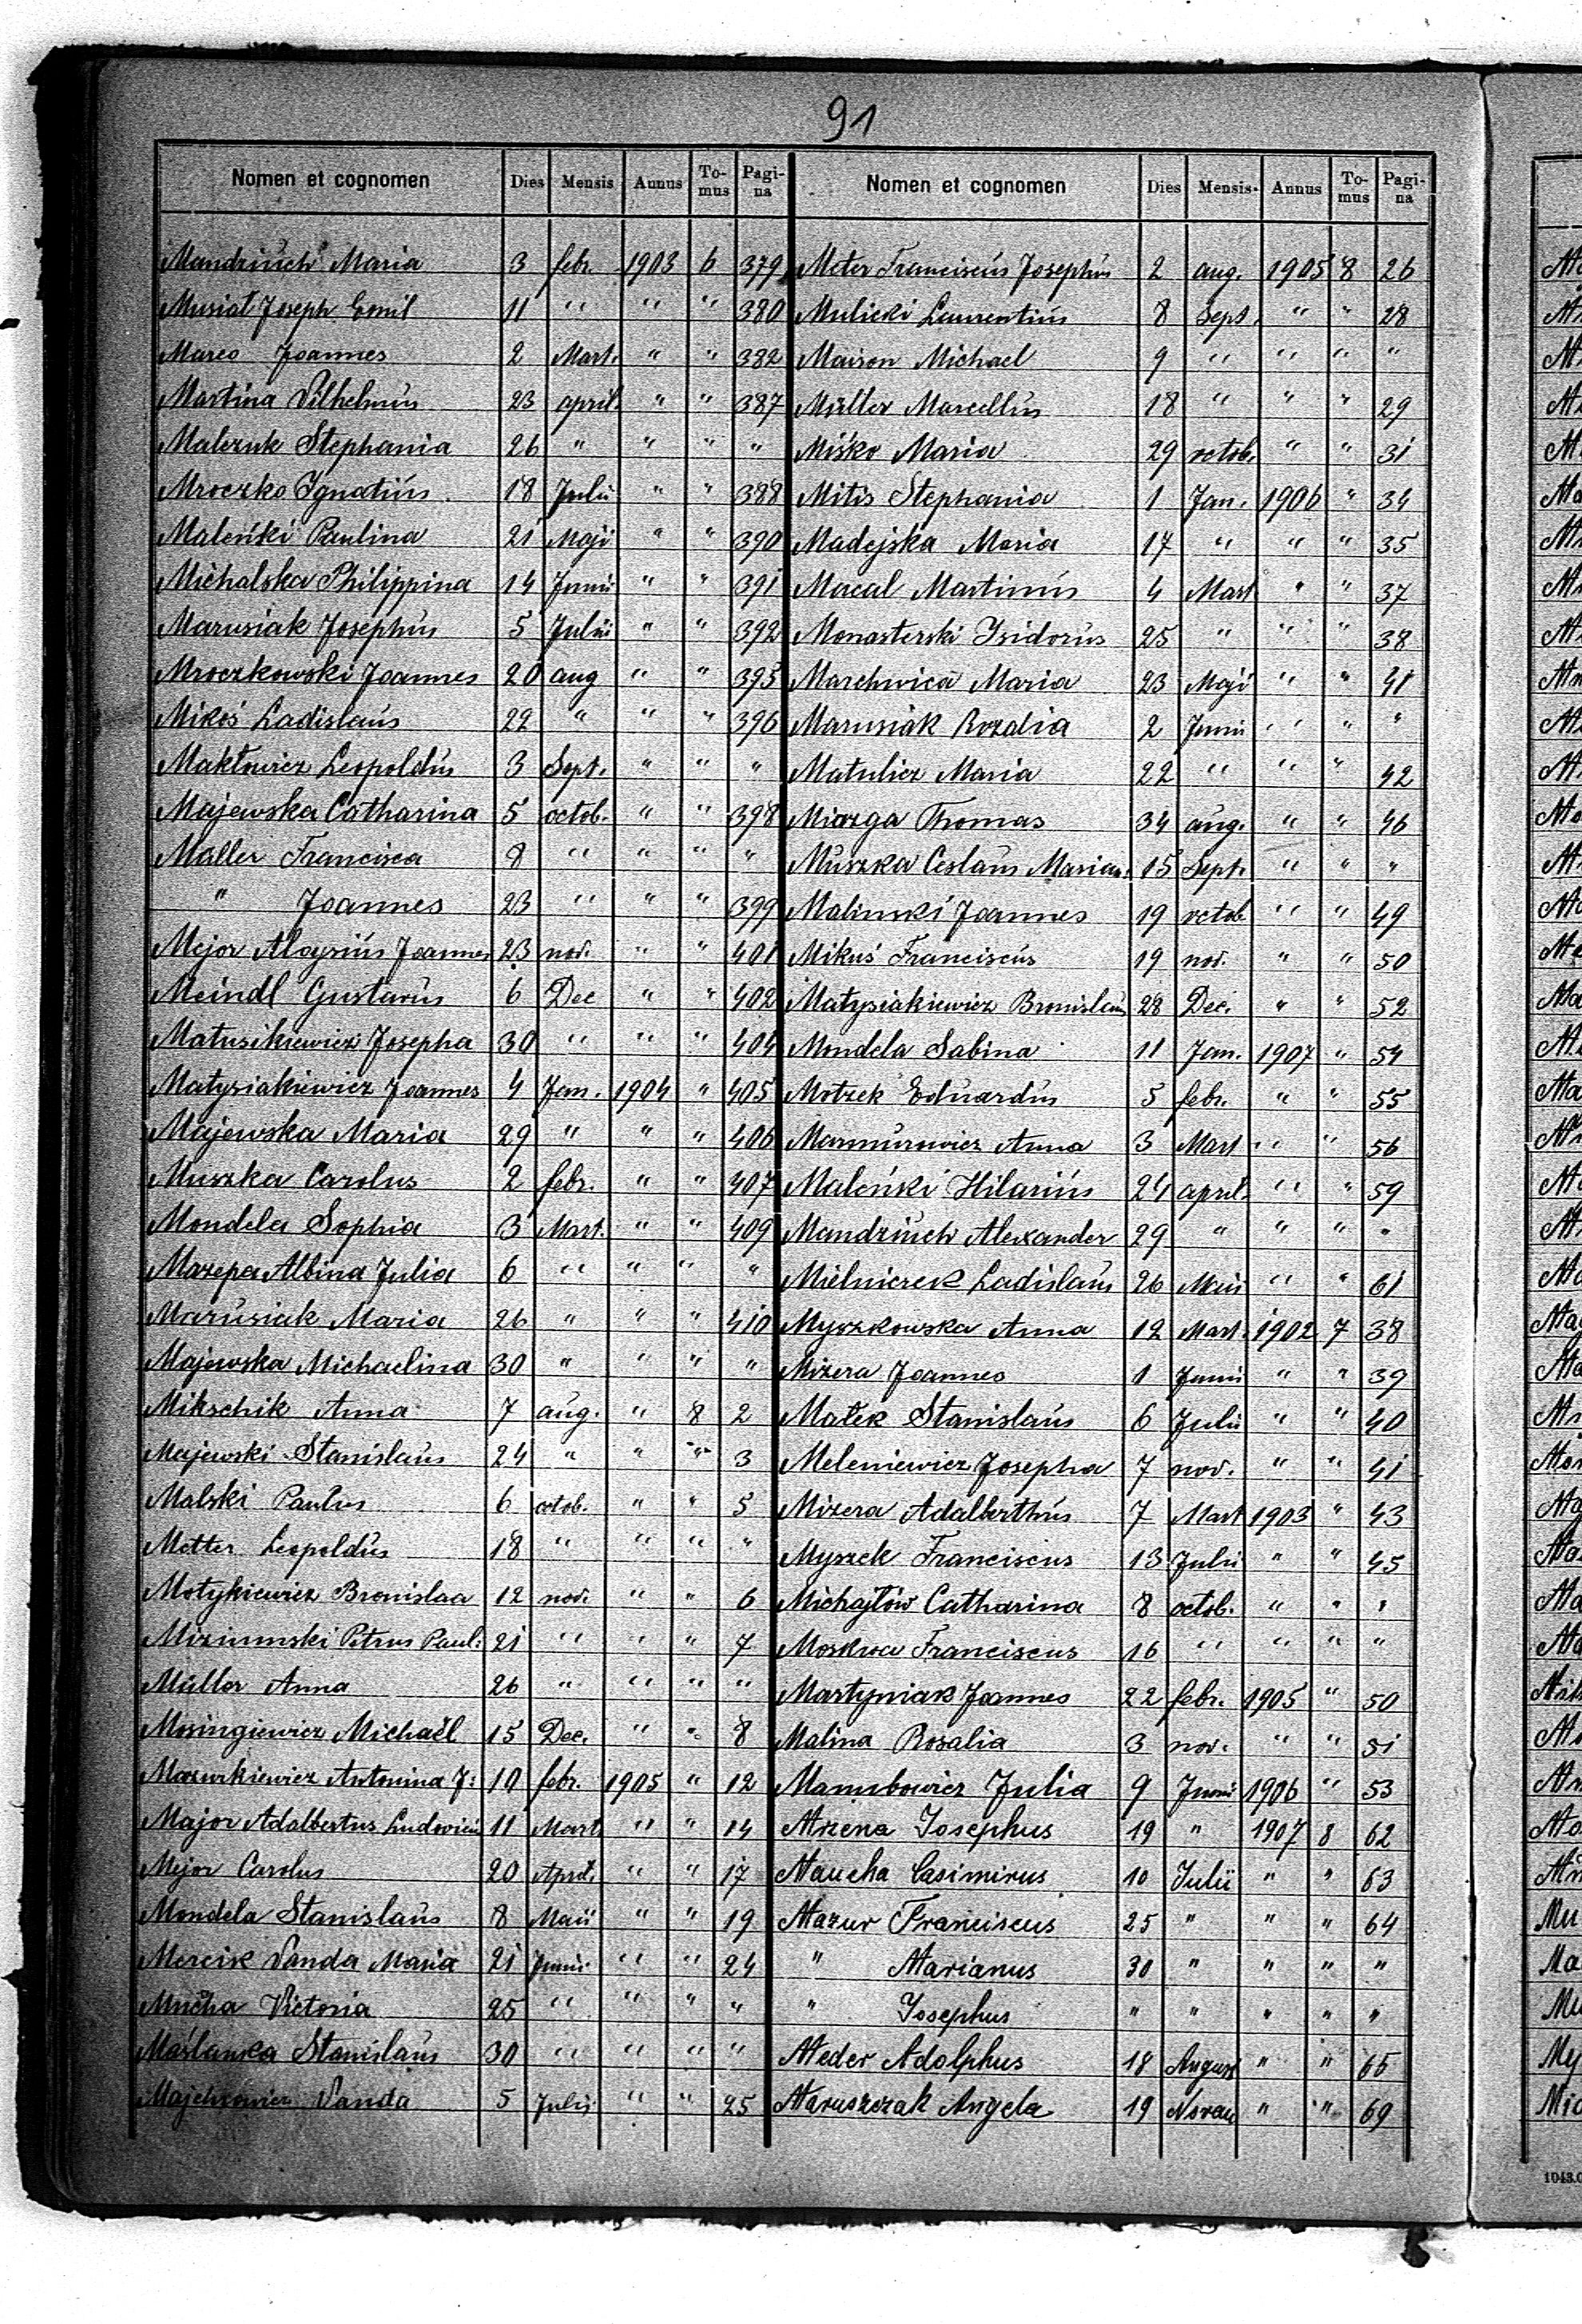 91
Nomen et cognomen Dies Mensis Annus To-mus Pagi-na
Mandziuch Maria 3 febr. 1903 6 379
Musiał Joseph Emil 11 " " " 380
Mareo Joannes 2 Mart. " " 382
Martina Vilhelmus 23 april. " " 387
Malczuk Stephania 26 " " " "
Mroczko Ignatius 18 Julii " " 388
Maleński Paulina 21 Maji " " 390
Michalska Philippina 14 Junii " " 391
Marusiak Josephus 5 Julii " " 392
Mroczkowski Joannes 20 aug " " 395
Mikoś Ladislaus 22 " " " 396
Makłowicz Leopoldus 3 Sept. " " "
Majewska Catharina 5 octob. " " 398
Maller Francisca 8 " " " "
" Joannes 23 " " " 399
Mejor Aloysius Joannes 23 nov. " " 401
Meindl Gustavus 6 Dec " " 402
Matusikiewicz Josepha 30 " " " 404
Matysiakiewicz Joannes 4 Jan. 1904 " 405
Majewska Maria 29 " " " 406
Muszka Carolus 2 febr. " " 407
Mondela Sophia 3 Mart. " " 409
Mazepa Albina Julia 6 " " " "
Marusiak Maria 26 " " " 410
Majewska Michaelina 30 " " " "
Mikschik Anna 7 aug. " 8 2
Majewski Stanislaus 24 " " " 3
Malski Paulus 6 octob. " " 5
Metter Leopoldus 18 " " " "
Motykiewicz Bronislaa 12 nov. " " 6
Miziumski Petrus Paul. 21 " " " 7
Müller Anna 26 " " " "
Mosingiewicz Michaël 15 Dec. " " 8
Mazurkiewicz Antonina J: 10 febr. 1905 " 12
Major Adalbertus Ludovicus 11 Mart " " 14
Mejor Carolus 20 April. " " 17
Mondela Stanislaus 8 Maii " " 19
Mercik Vanda Maria 21 Junii " " 24
Mucha Victoria 25 " " " "
Maślanka Stanislaus 30 " " " "
Majchrowicz Vanda 5 Julii " " 25
Nomen et cognomen Dies Mensis Annus To-mus Pagi-na
Meter Franciscus Josephus 2 aug. 1905 8 26
Mulicki Laurentius 8 Sept. " " 28
Maison Michael 9 " " " "
Müller Marcellus 18 " " " 29
Miśko Maria 29 octob. " " 31
Mitis Stephania 1 Jan. 1906 " 34
Madejska Maria 17 " " " 35
Macal Martinus 4 Mart " " 37
Monasterski Isidorus 25 " " " 38
Marchwica Maria 23 Maji " " 41
Marusiak Rozalia 2 Junii " " "
Matulicz Maria 22 " " " 42
Miazga Thomas 34 aug. " " 46
Muszka Ceslaus Marian. 15 Sept. " " "
Malinski Joannes 19 octob " " 49
Mikuś Franciscus 19 nov. " " 50
Matysiakiewicz Bronislaus 28 Dec. " " 52
Mondela Sabina 11 Jan. 1907 " 54
Motzek Eduardus 5 febr. " " 55
Marmurowicz Anna 3 Mart " " 56
Maleński Hilarius 24 april. " " 59
Mandziuch Alexander 29 " " " "
Mielniczek Ladislaus 26 Maii " " 61
Myszkowska Anna 12 Mart. 1902 7 38
Mizera Joannes 1 Junii " " 39
Małek Stanislaus 6 Julii " " 40
Meleniewicz Josepha 7 nov. " " 41
Mizera Adalberthus 7 Mart 1903 " 43
Myszek Franciscus 13 Julii " " 45
Michajłów Catharina 8 octob. " " "
Moskwa Franciscus 16 " " " "
Martyniak Joannes 22 febr. 1905 " 50
Malina Rosalia 3 nov. " " 51
Marubowicz Julia 9 Junii 1906 " 53
Mrzena Josephus 19 " 1907 8 62
Maucha Casimirus 10 Julii " " 63
Mazur Franciscus 25 " " " 64
" Marianus 30 " " " "
" Josephus " " " " "
Meder Adolphus 18 August " " 65
Maruszczak Angela 19 " " 69